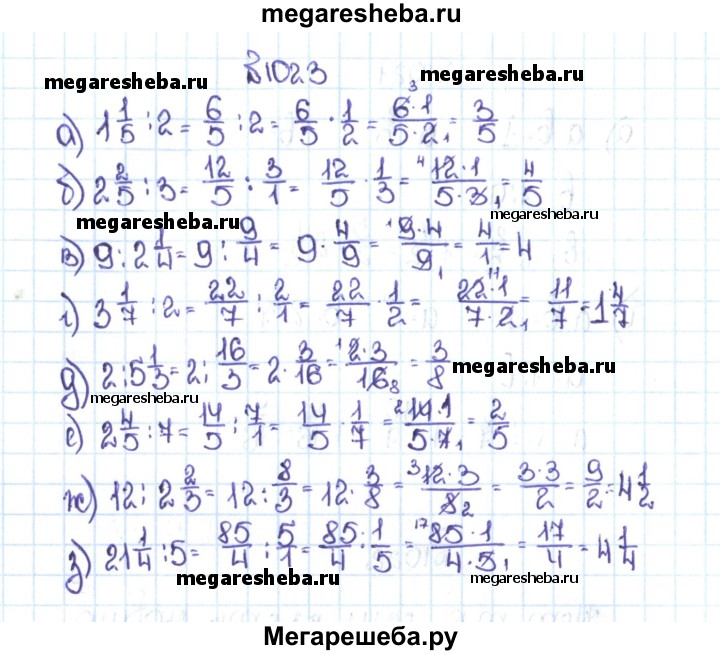 megaresheba.ru
В 1023
megaresheba.ru megaresheba.ru
а) 1 1/5 : 2 = 6/5 : 2 = 6/5 · 1/2 = 6·1/5·2 = 3/5
б) 2 2/5 : 3 = 12/5 : 3/1 = 12/5 · 1/3 = 12·1/5·3 = 4/5
megaresheba.ru megaresheba.ru
в) 9 : 2 1/4 = 9 : 9/4 = 9 · 4/9 = 9·4/9 = 4/1 = 4
г) 3 1/7 : 2 = 22/7 : 2/1 = 22/7 · 1/2 = 22·1/7·2 = 11/7 = 1 4/7
д) 2 : 5 1/3 = 2 : 16/3 = 2 · 3/16 = 2·3/16 = 3/8
megaresheba.ru
megaresheba.ru
е) 2 4/5 : 7 = 14/5 : 7/1 = 14/5 · 1/7 = 14·1/5·7 = 2/5
ж) 12 : 2 2/3 = 12 : 8/3 = 12 · 3/8 = 12·3/8 = 3·3/2 = 9/2 = 4 1/2
з) 21 1/4 : 5 = 85/4 : 5/1 = 85/4 : 1/5 = 85·1/4·5 = 17/4 = 4 1/4
megaresheba.ru megaresheba.ru
Мегарешеба.ру